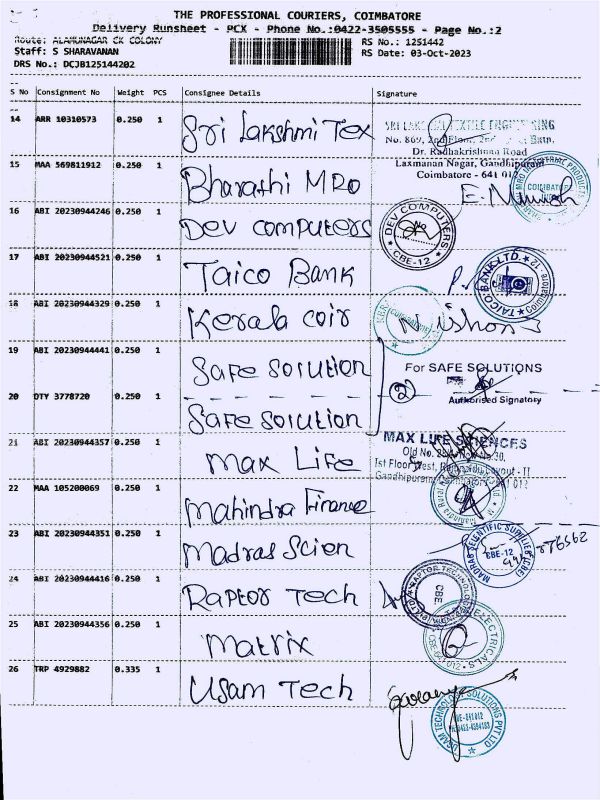 THE PROFESSIONAL COURIERS, COIMBATORE
Delivery Runsheet - PCX - Phone No.:0422-3505555 - Page No.:2
Route: ALAMUNAGAR CK COLONY
RS No.: 1251442
Staff: S SHARAVANAN
RS Date: 03-Oct-2023
DRS No.: DCJB125144202
S No Consignment No Weight PCS Consignee Details Signature
14 ARR 10310573 0.250 1 Sri Lakshmi Tex
No. 869, 2nd Floor,
Dr. Radhakrishnan Road
Laxmanan Nagar, Gandhipuram
Coimbatore - 641 012
15 MAA 569811912 0.250 1 Bharathi MRO
COIMBATORE
16 ABI 20230944246 0.250 1 Dev computers
DEV COMPUTERS
CBE-12
17 ABI 20230944521 0.250 1 Taico Bank
TAICO BANK LTD.
18 ABI 20230944329 0.250 1 Kerala coir
19 ABI 20230944441 0.250 1 Safe solution
For SAFE SOLUTIONS
2
Authorised Signatory
20 DTY 3778720 0.250 1 Safe solution
21 ABI 20230944357 0.250 1 Max Life
MAX LIFE SCIENCES
22 MAA 105200069 0.250 1 Mahindra Finance
23 ABI 20230944351 0.250 1 Madras Scien
MADRAS SCIENTIFIC SUPPLIES (CBE)
CBE-12
24 ABI 20230944416 0.250 1 Raptor Tech
RAPTOR TECHNOLOGY
CBE
25 ABI 20230944356 0.250 1 Matrix
ELECTRICALS
CBE-641 012
26 TRP 4929882 0.335 1 Usam Tech
USAM TECHNOLOGY SOLUTIONS PVT LTD